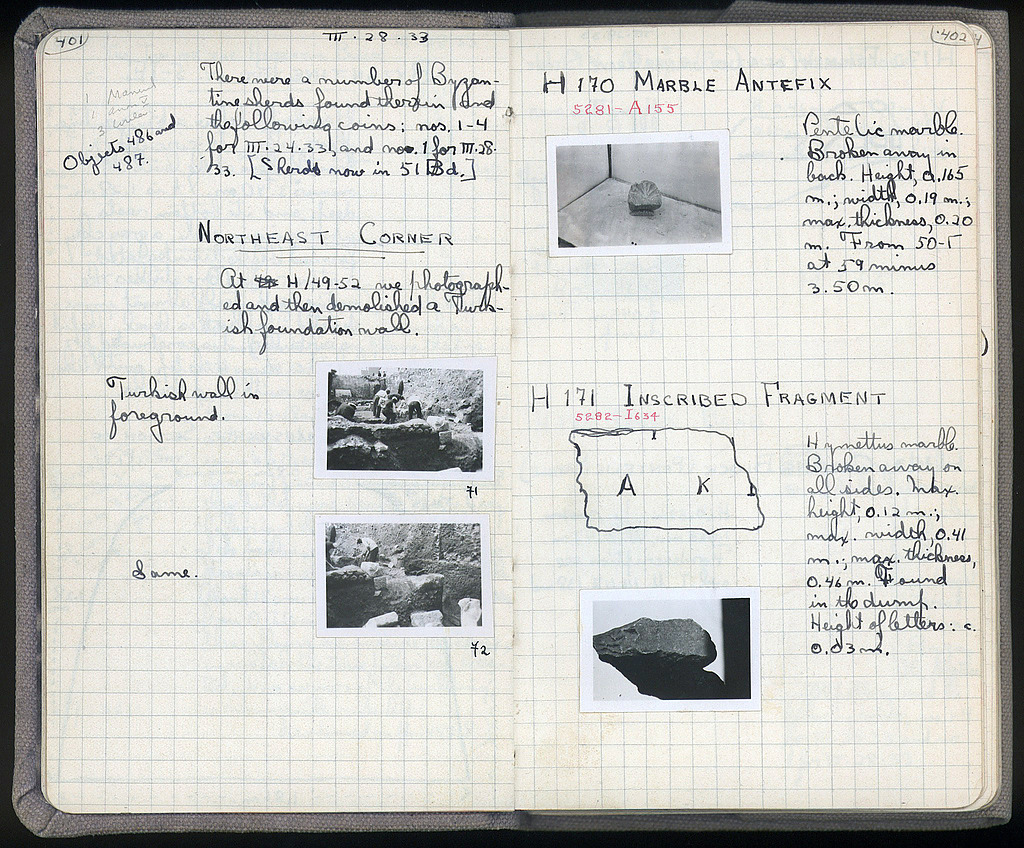 401
III · 28 · 33
There were a number of Byzan-
tine sherds found therein and
the following coins: nos. 1-4
for III.24.33, and no. 1 for III.28.
33. [Sherds now in 51 Bd.]
1
1
3
Objects 486 and
487.
NORTHEAST CORNER
At H/49-52 we photograph-
ed and then demolished a Turk-
ish foundation wall.
Turkish wall in
foreground.
71
Same.
72
402
H 170 MARBLE ANTEFIX
5281-A155
Pentelic marble.
Broken away in
back. Height, 0.165
m.; width, 0.19 m.;
max. thickness, 0.20
m. From 50-Γ
at 59 minus
3.50 m.
H 171 INSCRIBED FRAGMENT
5282-I634
A K
Hymettus marble.
Broken away on
all sides. Max.
height, 0.12 m.;
max. width, 0.41
m.; max. thickness,
0.46 m. Found
in the dump.
Height of letters: c.
0.03 m.